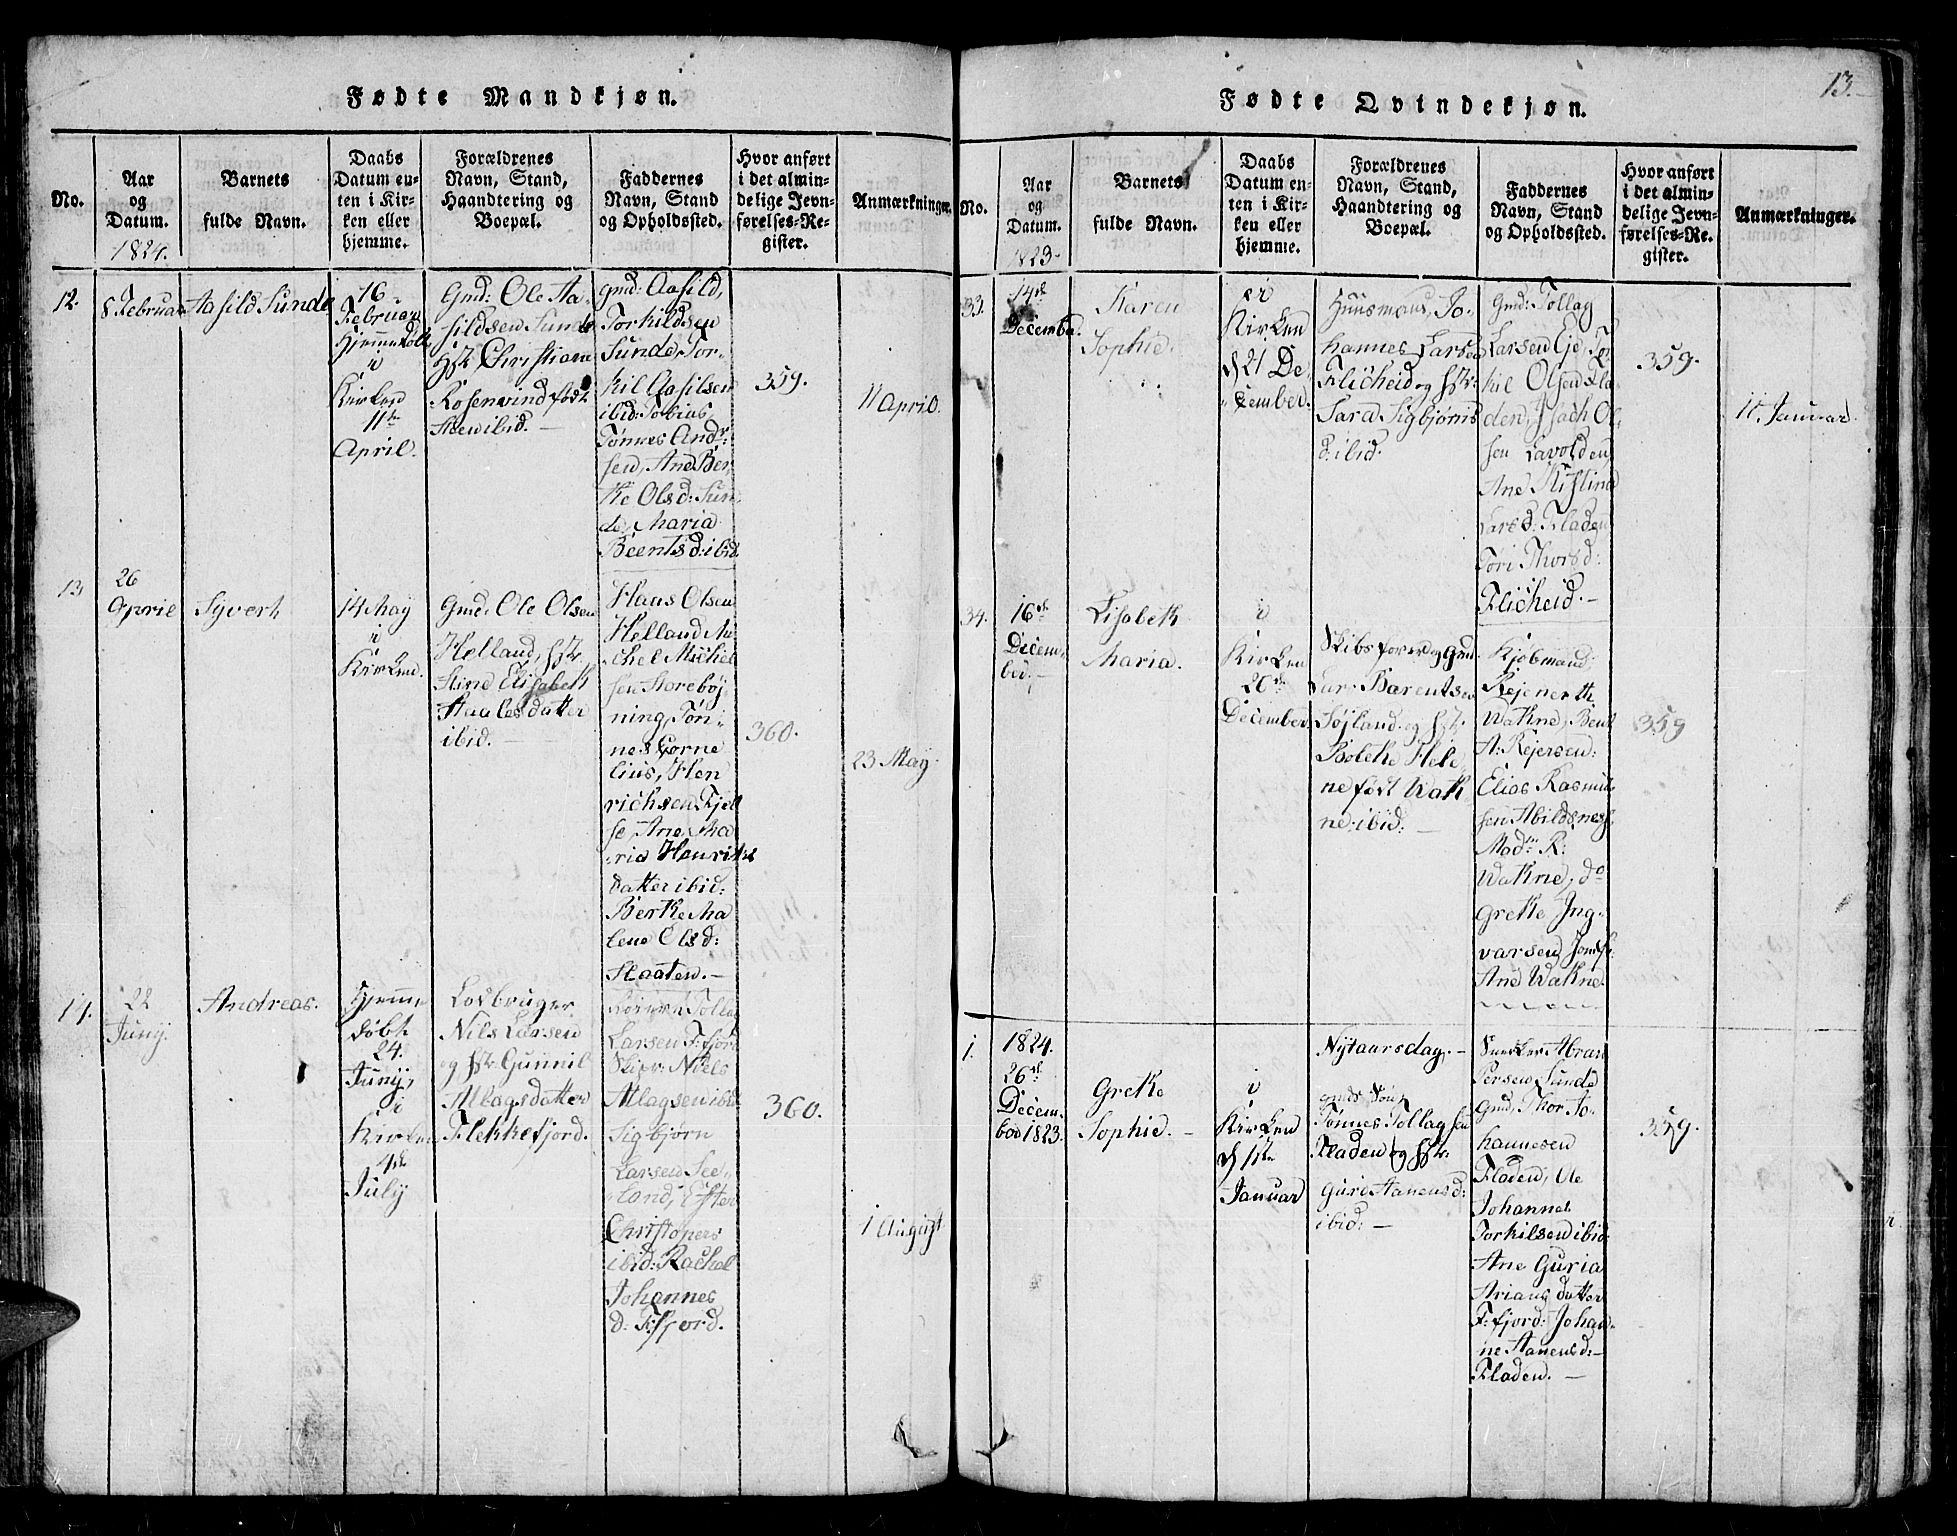 Fødte Mandkjøn.
No.
Aar
og
Datum.
1824.
Barnets
fulde Navn.
Daabs
Datum en-
ten i Kir-
ken eller
hjemme.
Forældrenes
Navn, Stand,
Haandtering og
Boepæl.
Faddernes
Navn, Stand
og Opholdssted.
Hvor anført
i det almin-
delige Jevn-
førelses-Re-
gister.
Anmærkninger.
12.
8 Februar
Aasild Sunde
16
Februar
Hjemmedøbt
i
Kirken
11te
April.
Gmd: Ole Aa-
sildsen Sunde
Hstr Christiane
Rosenvind født
Steen ibid. —
Gmd: Aasild,
Torkildsen
Sunde, Tor-
kil Aasilsen
ibid: Tobias,
Tønnes Andr:
sen, Ane Ber
the Olsd: Sun
de, Maria
Beentsd: ibid
359.
11 April.
13
26
April
Syvert
14 May
i
Kirken.
Gmd: Ole Olsen
Helland, Hstr
Stine Elisabeth
Staalesdatter
ibid. —
Hans Olsen
Helland Mi
chel Michel
sen Storebøj
ning, Tøn-
nes Corne
lius, Hen
richsen Fjell
se, Ane Ma
ria Henriks
datter ibid:
Berthe Ma
lene Olsd:
Staaten. —
360.
23 May.
14.
22
Junij.
Andreas.
Hjemme
døbt
24.
Junij,
i
Kirken
4de
July
Losbruger
Nils Larsen
og Hstr Gunnil
Atlagsdatter
Flekkefjord.
Tolla
Larsen F:fjord
Skipr: Niels
Atlagsen ibid
Sigbjørn
Larsen See-
land, Ester
Christopers
ibid: Rachel
Johannes
d: F:fjord.
360.
1 August
Fødte Qvindekjøn.
13.
No.
Aar
og
Datum.
1823.
Barnets
fulde Navn.
Daabs
Datum en-
ten i Kir-
ken eller
hjemme.
Forældrenes
Navn, Stand,
Haandtering og
Boepæl.
Faddernes
Navn, Stand
og Opholdssted.
Hvor anført
i det almin-
delige Jevn-
førelses-Re-
gister.
Anmærkninger.
33.
14de
December.
Karen
Sophie.
i
Kirken
d 21 De-
cember.
Huusmand, Jo-
hannes Larsen
Flicheid og Hstr:
Sara Sigbjørns
d: ibid.
Gmd: Tollag
Larsen Eje, Tor
kil Olsen Fla
den, Isach Ol-
sen Lavolden,
Ane Kistina
Larsd: Fladen
Tøri Thorsd:
Flicheid. —
359.
11. Januar.
34.
16de
Decem-
ber. —
Lisabeth
Maria.
i
Kirken
26de
December.
Skibsfører og Gmd.
Lar: Barentsen
Søjland og Hstr.
Bolethe Hele-
ne født Wath
ne, ibid: —
Kjøbmand
Rejnerth
Wathne, Bent
A: Rejersen:
Elias Rasmus
sen Abildsness.
Madm R:
Wathne, do
Grethe Ing-
varsen, Jomf:
Ane Wathne.
359
1.
1824.
26de
Decem-
ber 1823.
Grethe
Sophie. —
i
Kirken
d 1ste
Januar
Nytaarsdag. —
gmds Søn
Tønnes Tollagsen
Fladen og Hstr.
Guri Aanensd:
ibid: —
Snecker Abran
Persen Sunde
Gmd, Thor Jo-
hannesen
Fladen, Ue
Johannes
Torkilsen ibid.
Ane Guria
Arians datter
F:fjord: Johan-
ne Aanensd: —
Fladen. —
359.